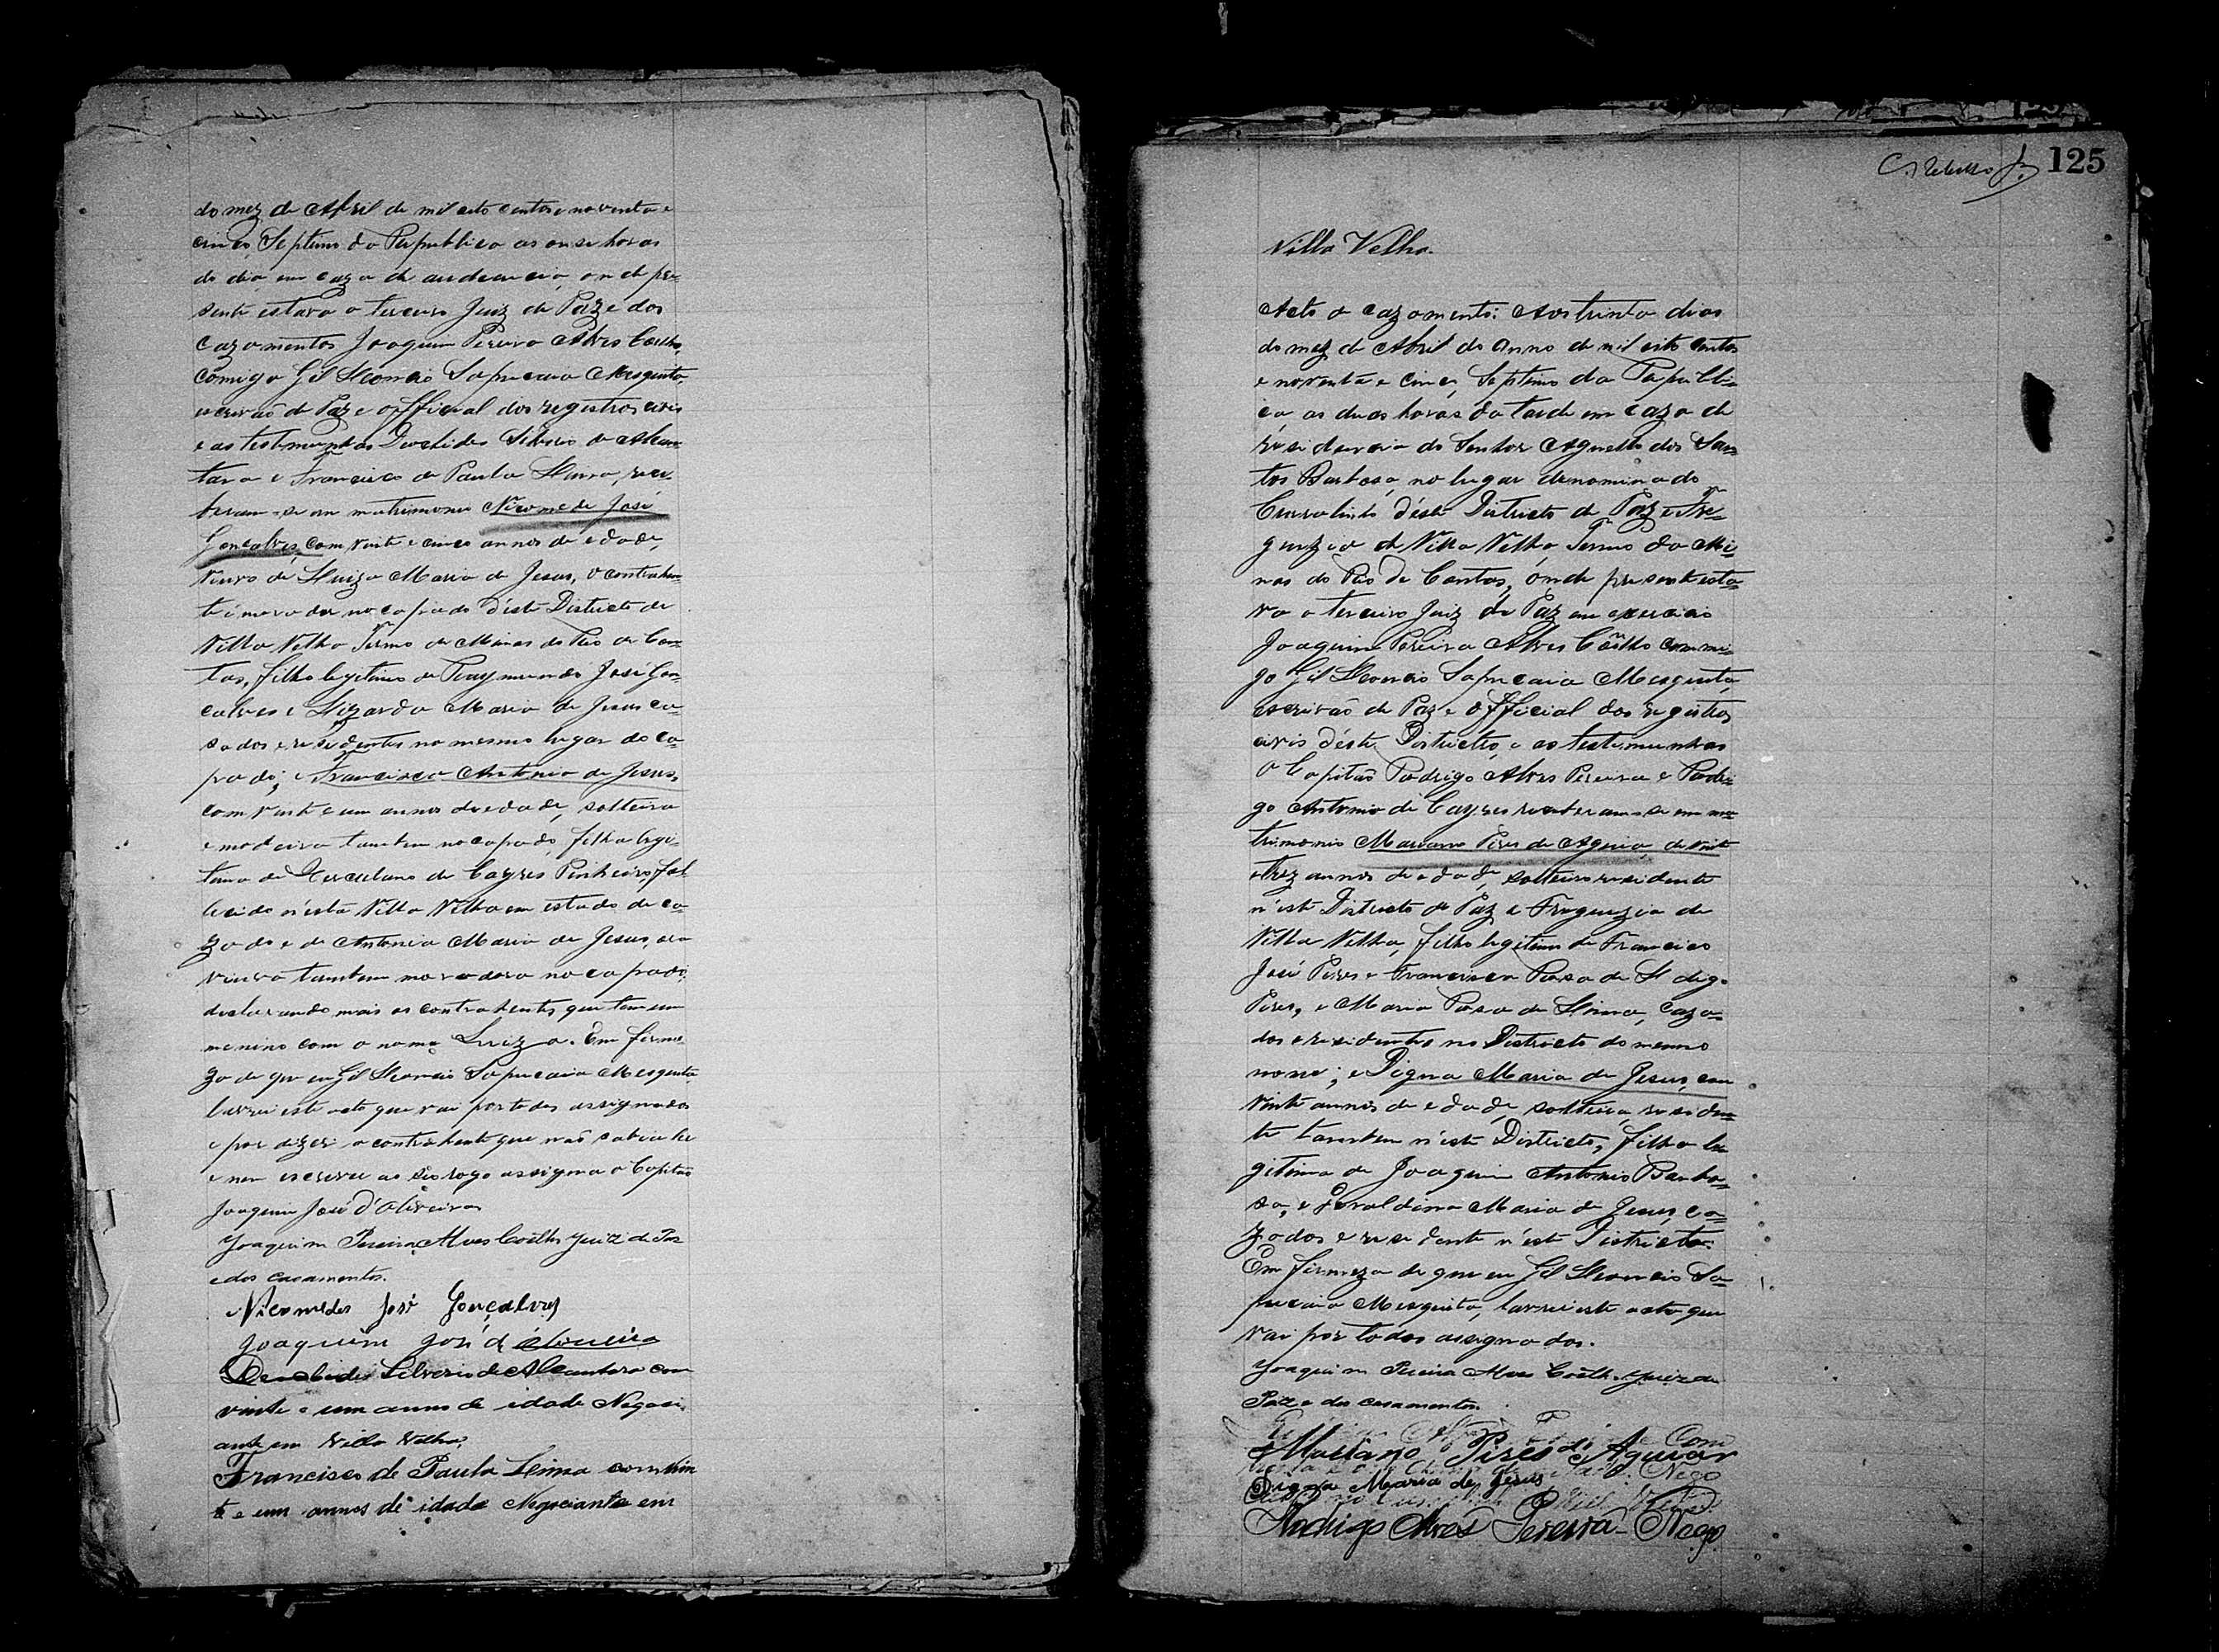 do mez de Abril de mil oito centos e noventa e
cinco, Septimo da Republica as onse horas
do dia em caza de audiencia, onde pre-
sente estava o terceiro Juiz de Paz e dos
cazamentos Joaquim Pereira Alves Coêlho,
comigo Gil Leoncio Sapucaia Mesquita,
escrivaõ de Paz e official dos registros civis
e as testemunhas Silverio de Alcan-
tara e Francisco de Paula Lima, rece-
beram-se em matrimonio Nicomede José
Gonçalves, com vinte e cinco annos de edade,
viuvo de Luiza Maria de Jesus, o contrahen-
te é morador no capado d'este Districto de
Villa Velha Termo de Minas do Rio de Con-
tas, filho legitimo de Raymundo José Gon-
calves e Lizarda Maria de Jesus ca-
sados e residentes no mesmo lugar do ca-
pado; e Francisca Antonia de Jesus,
com vinte e um annos de edade, solteira
e moradeira tambem no capado, filha legi-
tima de Herculano de Cayres Pinheiro, fal-
lecido n'esta Villa Velha em estado de ca-
zado e de Antonia Maria de Jesus, ora
viuva tambem moradora no capado,
declarando mais os contrahentes que tem um
menino com o nome Luiza. Em firme-
za do que eu Gil Leoncio Sapucaia Mesquita
lavrei este acto que vai por todos assignados
e por dizer a contrahente que naõ sabia ler
e nem escrever ao seo rogo assigna o Capitaõ
Joaquim José d'Oliveira
Joaquim Pereira Alves Coêlho Juiz de Paz
e dos casamentos.
Nicomedes José Gonçalves
Joaquim José d'Oliveira
Silverio de Alcantara com
vinte e um annos de idade Negoci-
ante em Villa Velha,
Francisco de Paula Lima com vin
te e um annos de idade Negociante em
125
Villa Velha.
Acto o cazamento: Aos trinta dias
do mez de Abril do anno de mil oito centos
e noventa e cinco, Septimo da Republi-
ca as duas horas da tarde em caza de
residencia do Senhor Agnello dos San-
tos Barbosa, no lugar denominado
d'este Districto de Paz e Fre-
guezia de Villa Velha Termo da Mi-
nas do Rio de Contas, onde presente esta-
va o terceiro Juiz de Paz em exercicio
Joaquim Pereira Alves Coêlho commi-
go Gil Leoncio Sapucaia Mesquita,
escrivaõ de Paz e official dos registros
civis d'este Districto, e as testemunhas
o Capitaõ Rodrigo Alves Pereira e Rodri-
go Antonio de Cayres receberam-se em ma-
trimonio Mariano Pires de Aguia, de vinte
e trez annos de edade, solteiro residente
n'este Districto de Paz e Freguezia de
Villa Velha, filho legitimo de Francisco
José Pires e Francisca Rosa de L digo
Pires, e Maria Rosa de Lima, caza-
dos e residentes no Districto do mesmo
nome; e Digna Maria de Jesus, com
vinte annos de edade, solteira, residen-
te tambem n'este Districto, filha le-
gitima de Joaquim Antonio Barbo-
sa, e Geraldina Maria de Jesus, ca-
zados e residente n'este Districto.
Em firmeza do que eu Gil Leoncio Sa-
pucaia Mesquita, lavrei este acto que
vai por todos assignados.
Joaquim Pereira Alves Coêlho Juiz de
Paz e dos casamentos.
Mariano Pires de Aguiar
Digna Maria de Jesus
Rodrigo Alves Pereira Nego